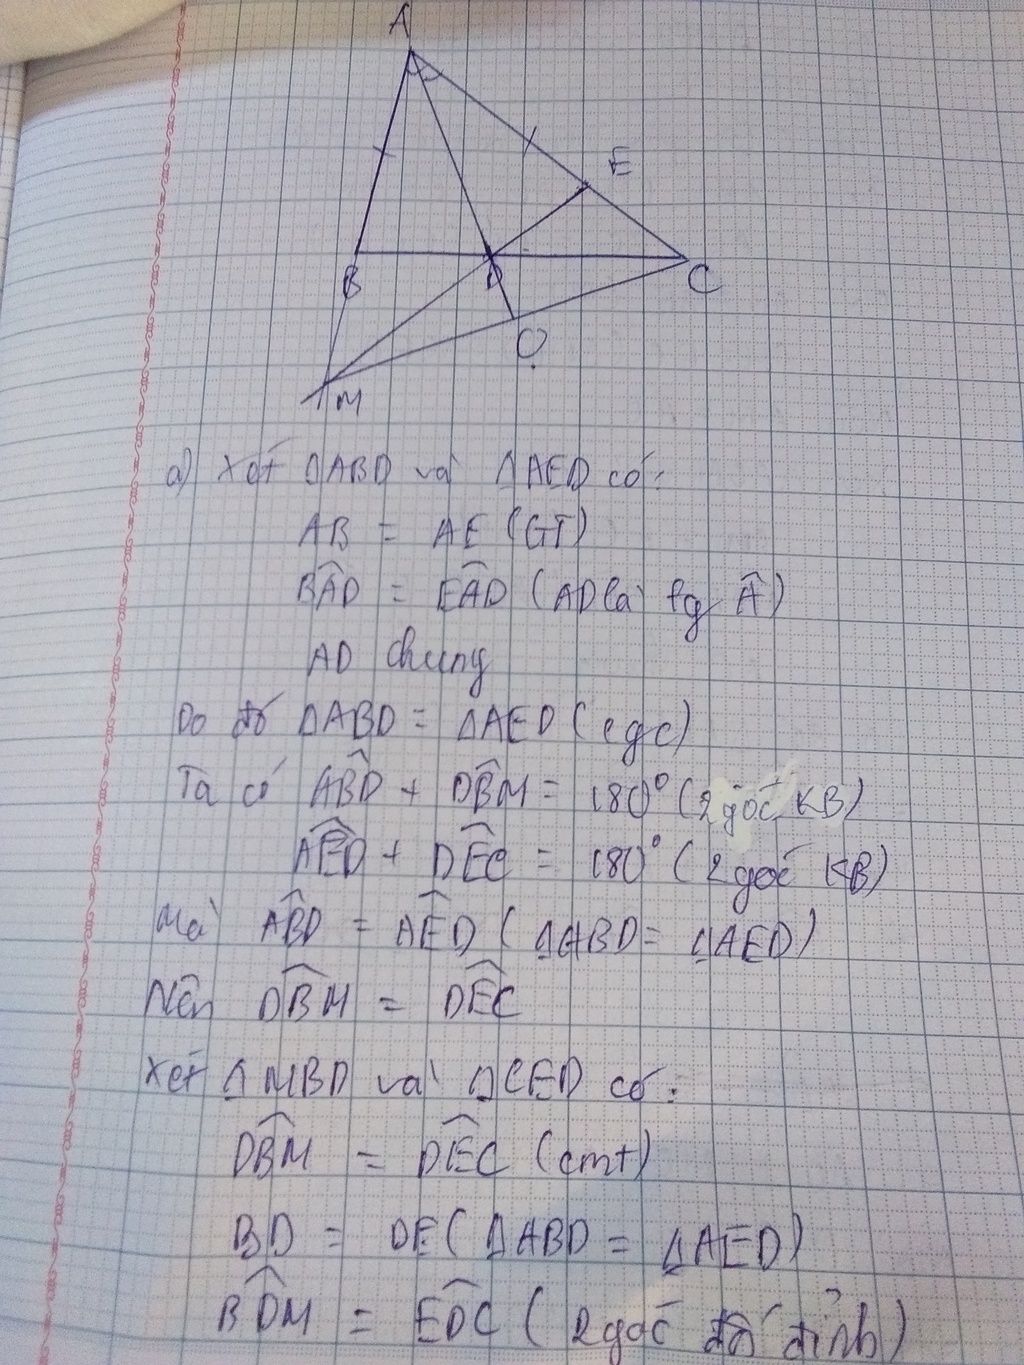 A
E
B
D
C
O
M
a) Xét ΔABD và ΔAED có:
AB = AE (GT)
BÂD = EÂD (AD là fg Â)
AD chung
Do đó ΔABD = ΔAED (cgc)
Ta có AB̂D + DB̂M = 180° (2 góc KB)
AÊD + DÊC = 180° (2 góc KB)
Mà AB̂D = AÊD (ΔABD = ΔAED)
Nên DB̂M = DÊC
Xét ΔMBD và ΔCED có:
DB̂M = DÊC (cmt)
BD = DE (ΔABD = ΔAED)
BD̂M = ED̂C (2 góc đối đỉnh)